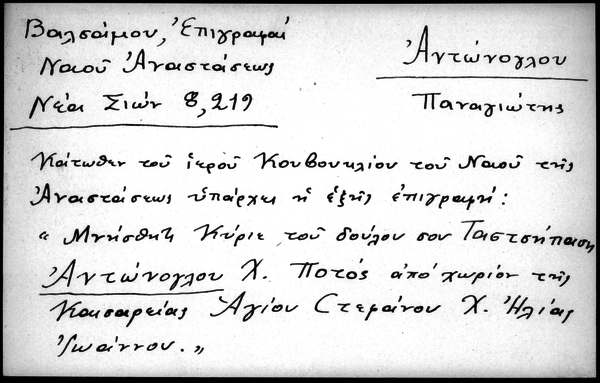 Βαλσάμου, Ἐπιγραφαί
Ναοῦ Ἀναστάσεως
Νέα Σιών 8,219
Ἀντώνογλου
Παναγιώτης
Κάτωθεν τοῦ ἱεροῦ Κουβουκλίου τοῦ Ναοῦ τῆς
Ἀναστάσεως ὑπάρχει ἡ ἑξῆς ἐπιγραφή:
« Μνήσθητι Κύριε τοῦ δούλου σου
Ἀντώνογλου Χ. Ποτός ἀπό χωρίον τῆς
Καισαρείας Ἁγίου Στεφάνου Χ. Ἠλίας
Ἰωάννου. »